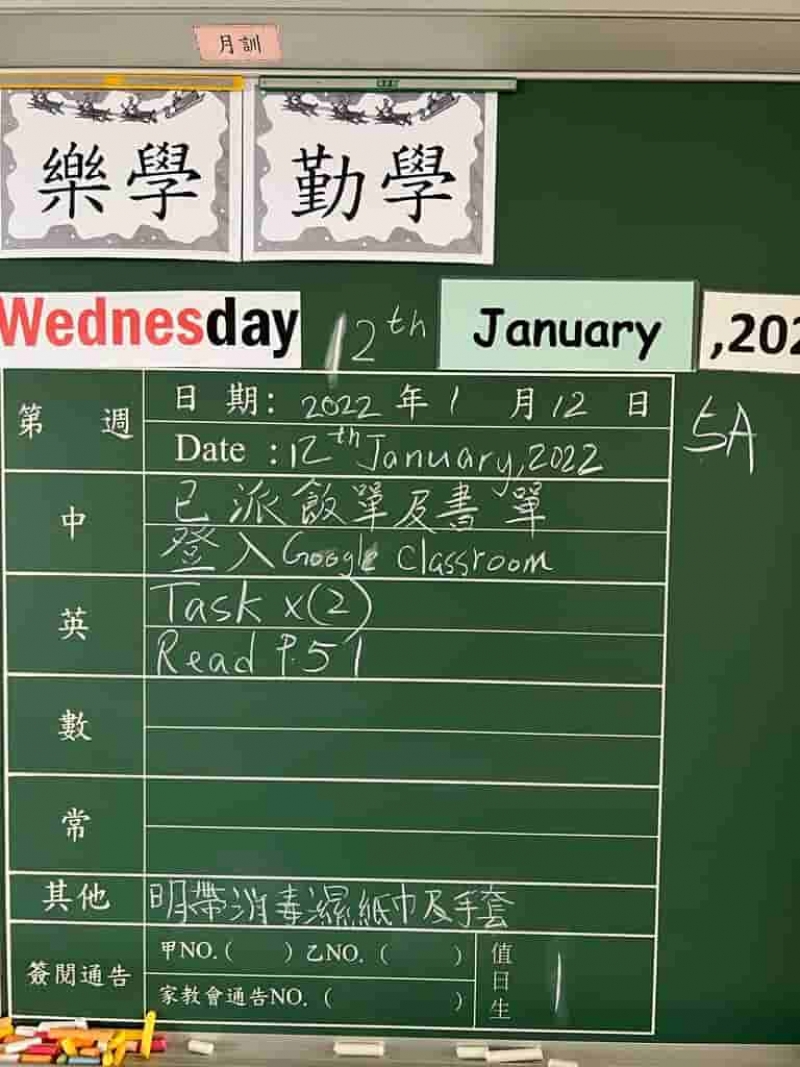 月訓
樂學 勤學
Wednesday 12th January ,202
第 週 日 期: 2022 年 1 月 12 日
Date : 12th January, 2022
5A
中 已派飯單及書單
登入 Google Classroom
英 Task x(2)
Read P.51
數
常
其他 明帶消毒濕紙巾及手套
簽閱通告 甲NO. ( ) 乙NO. ( )
家教會通告NO. ( )
值日生 1